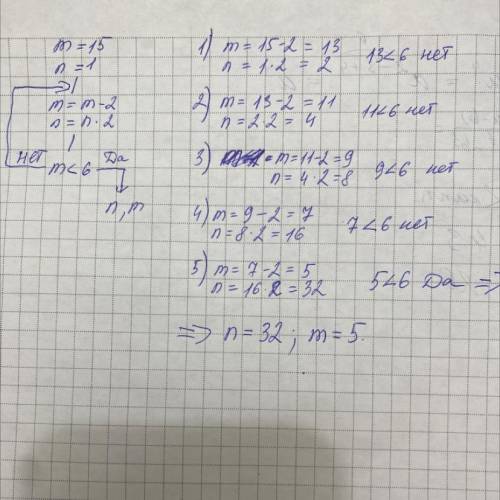 m = 15
n = 1
m = m-2
n = n·2
нет m<6 Да
n, m
1) m = 15-2 = 13
n = 1·2 = 2
13<6 нет
2) m = 13-2 = 11
n = 2·2 = 4
11<6 нет
3) m = 11-2 = 9
n = 4·2 = 8
9<6 нет
4) m = 9-2 = 7
n = 8·2 = 16
7<6 нет
5) m = 7-2 = 5
n = 16·2 = 32
5<6 Да =>
=> n = 32; m = 5.